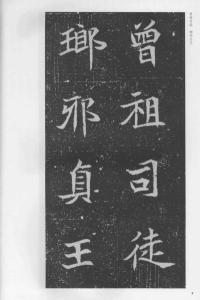 曾祖司徒
瑯邪貞王